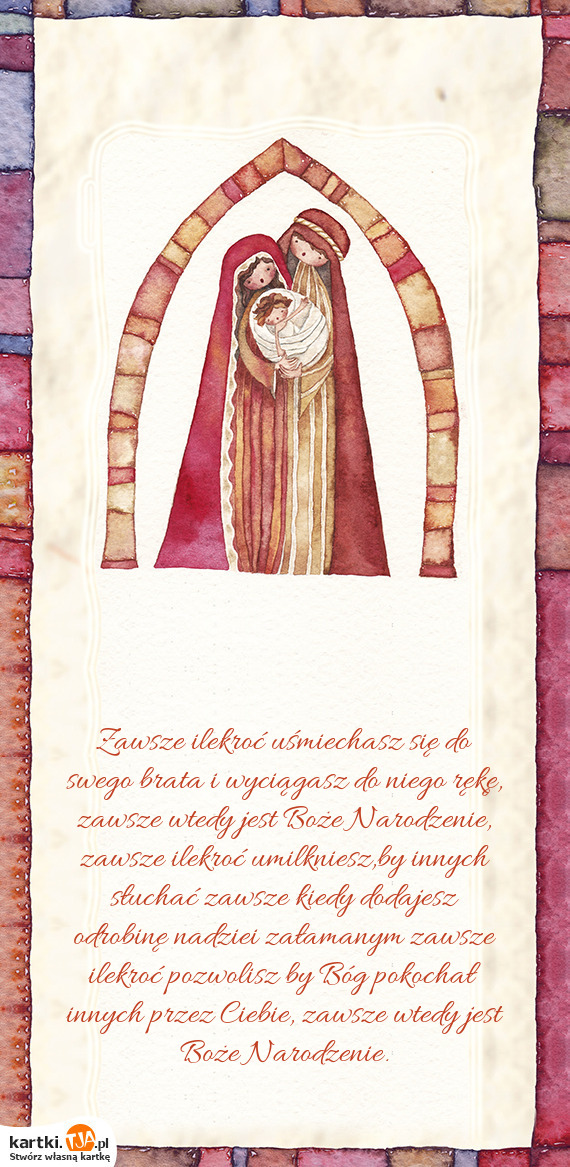 Zawsze ilekroć uśmiechasz się do
swego brata i wyciągasz do niego rękę,
zawsze wtedy jest Boże Narodzenie,
zawsze ilekroć umilkniesz,by innych
słuchać zawsze kiedy dodajesz
odrobinę nadziei załamanym zawsze
ilekroć pozwolisz by Bóg pokochał
innych przez Ciebie, zawsze wtedy jest
Boże Narodzenie.
kartki.TJA.pl
Stwórz własną kartkę